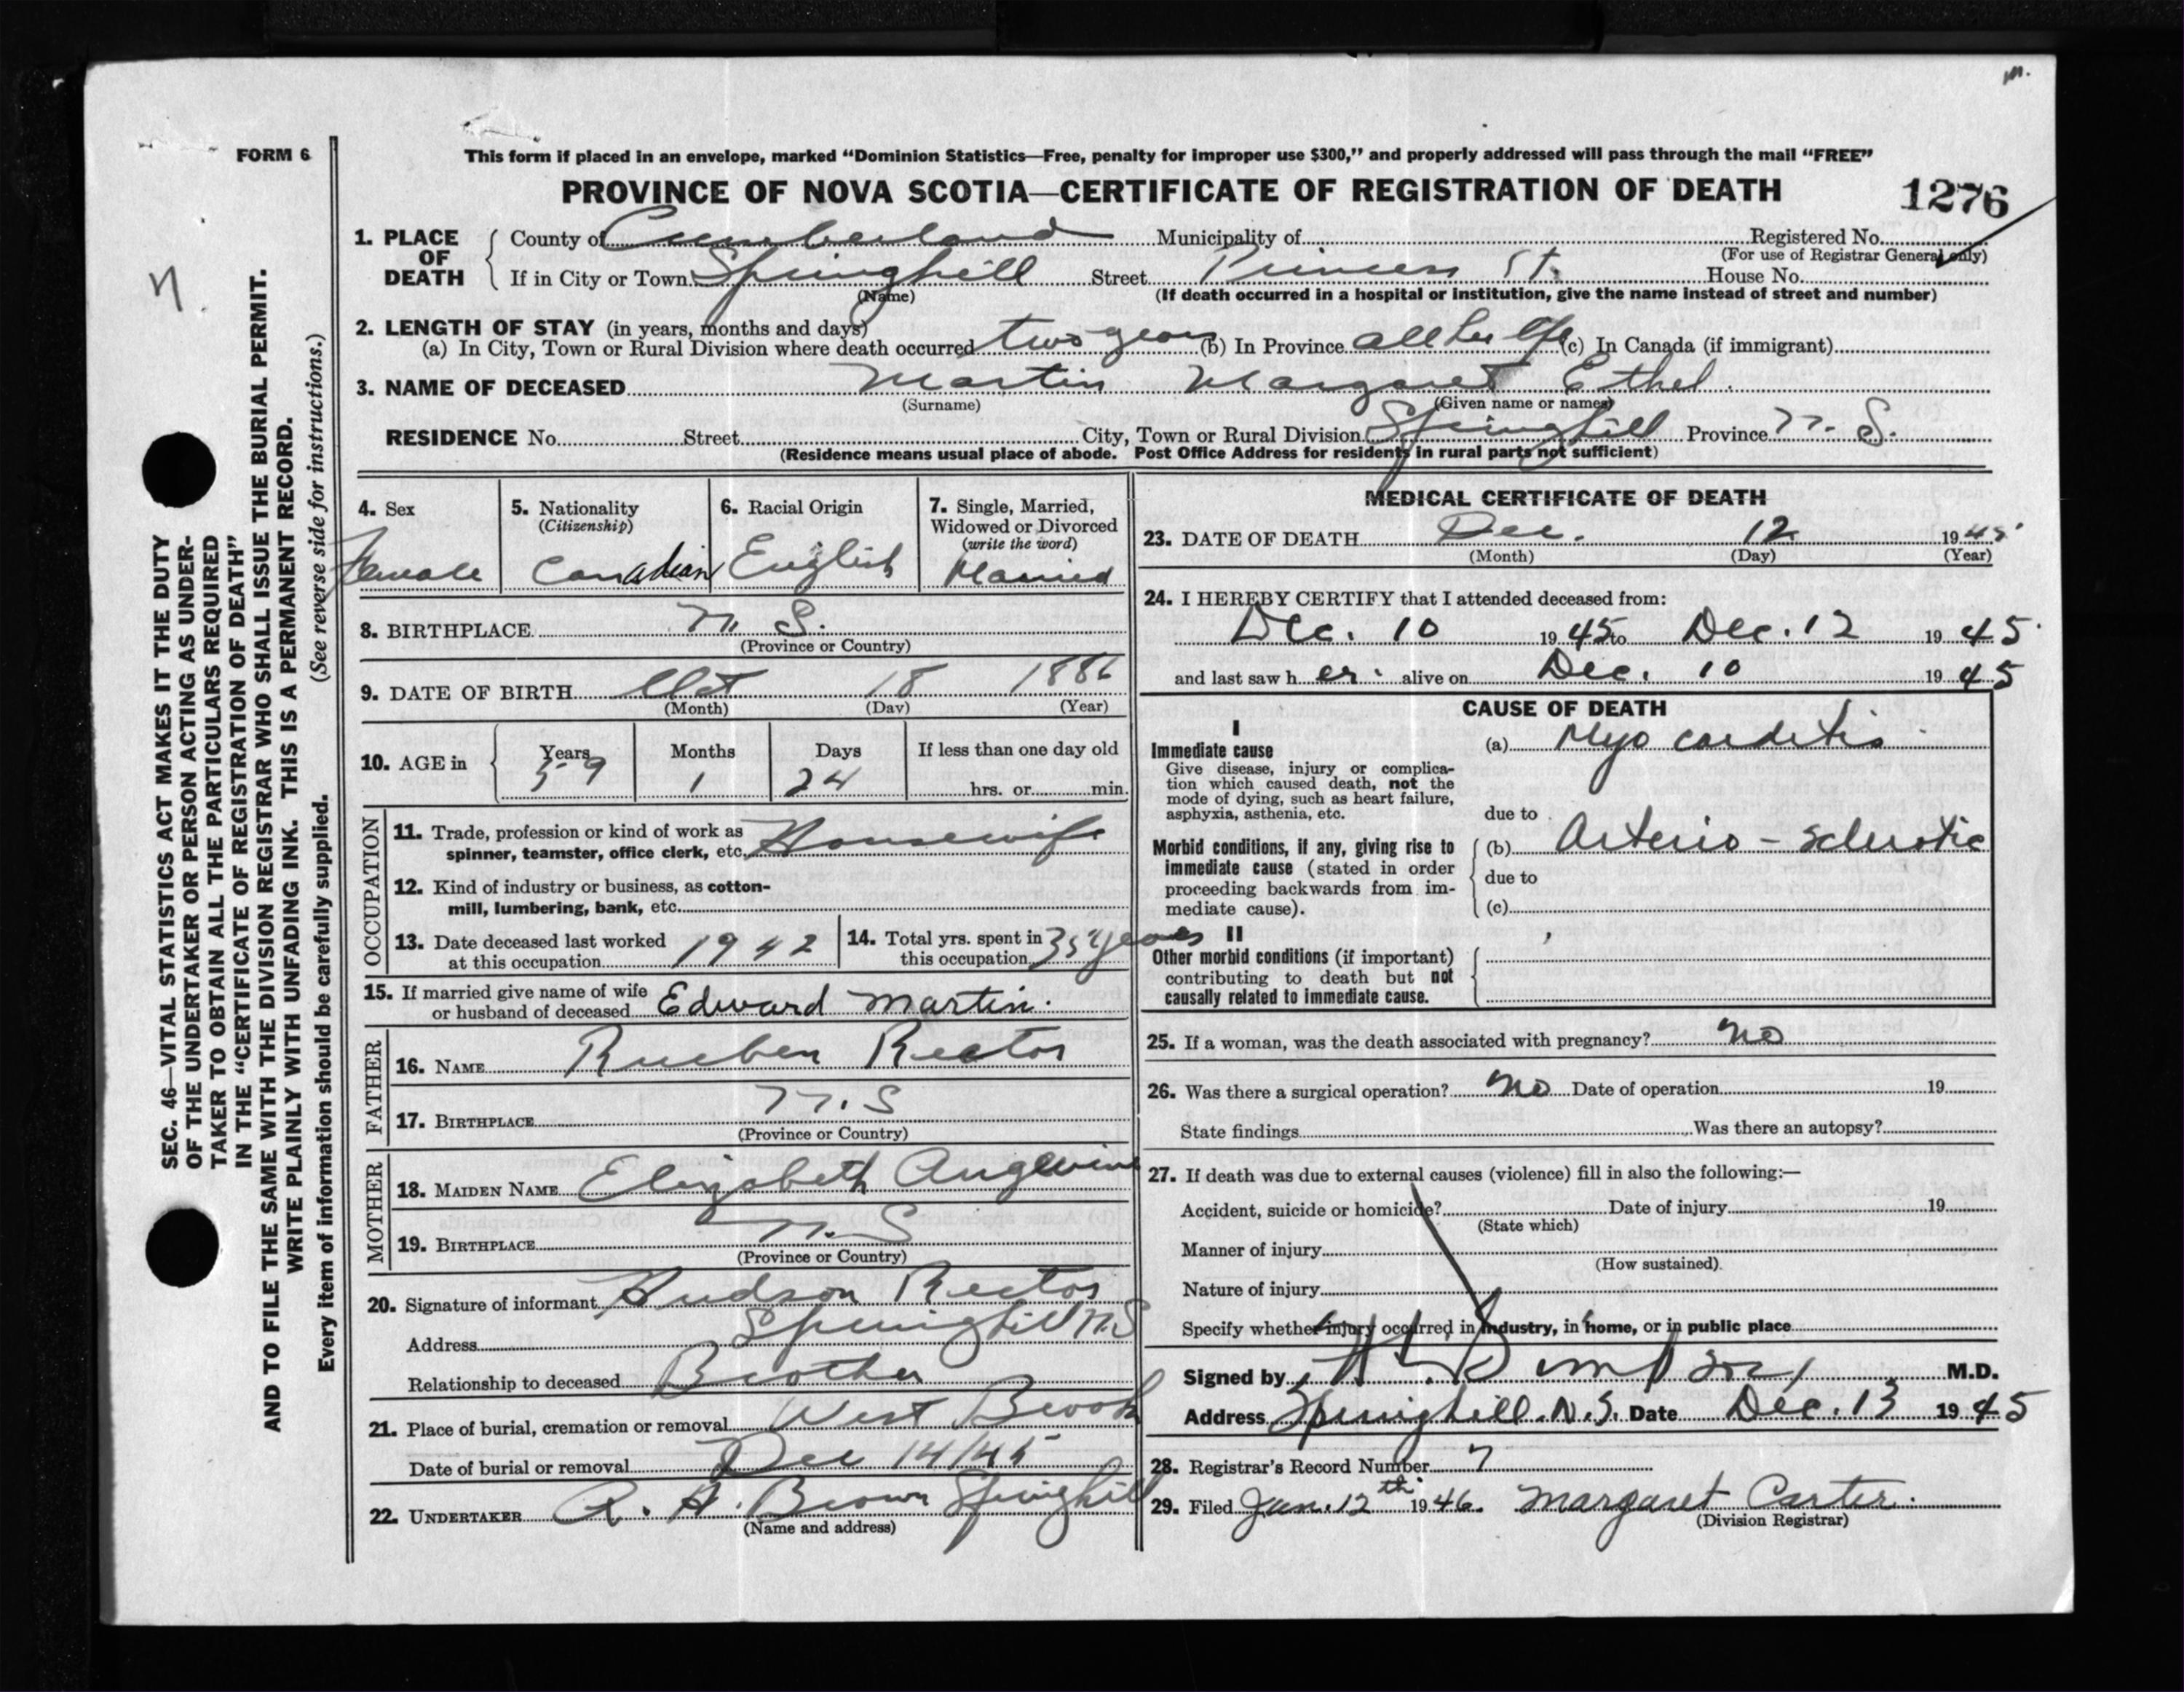 m.
FORM 6
This form if placed in an envelope, marked “Dominion Statistics—Free, penalty for improper use $300,” and properly addressed will pass through the mail “FREE”
PROVINCE OF NOVA SCOTIA—CERTIFICATE OF REGISTRATION OF DEATH
1276
n.
SEC. 46—VITAL STATISTICS ACT MAKES IT THE DUTY
OF THE UNDERTAKER OR PERSON ACTING AS UNDER-
TAKER TO OBTAIN ALL THE PARTICULARS REQUIRED
IN THE “CERTIFICATE OF REGISTRATION OF DEATH”
AND TO FILE THE SAME WITH THE DIVISION REGISTRAR WHO SHALL ISSUE THE BURIAL PERMIT.
WRITE PLAINLY WITH UNFADING INK. THIS IS A PERMANENT RECORD.
Every item of information should be carefully supplied. (See reverse side for instructions.)
1. PLACE OF DEATH
County of Cumberland Municipality of Registered No.
(For use of Registrar General only)
If in City or Town Springhill Street Princess St. House No.
(Name) (If death occurred in a hospital or institution, give the name instead of street and number)
2. LENGTH OF STAY (in years, months and days)
(a) In City, Town or Rural Division where death occurred two years (b) In Province all her life (c) In Canada (if immigrant)
3. NAME OF DECEASED Martin Margaret Ethel.
(Surname) (Given name or names)
RESIDENCE No. Street City, Town or Rural Division Springhill Province N. S.
(Residence means usual place of abode. Post Office Address for residents in rural parts not sufficient)
4. Sex
Female
5. Nationality
(Citizenship)
Canadian
6. Racial Origin
English
7. Single, Married,
Widowed or Divorced
(write the word)
Married
8. BIRTHPLACE N. S.
(Province or Country)
9. DATE OF BIRTH Oct 18 1886
(Month) (Day) (Year)
10. AGE in Years Months Days If less than one day old
59 1 24 hrs. or min.
OCCUPATION
11. Trade, profession or kind of work as
spinner, teamster, office clerk, etc. Housewife
12. Kind of industry or business, as cotton-
mill, lumbering, bank, etc.
13. Date deceased last worked
at this occupation 1942
14. Total yrs. spent in
this occupation 35 years
15. If married give name of wife
or husband of deceased Edward Martin.
FATHER
16. NAME Rueben Rector
17. BIRTHPLACE N. S
(Province or Country)
MOTHER
18. MAIDEN NAME Elizabeth Angevine
19. BIRTHPLACE N. S
(Province or Country)
20. Signature of informant Hudson Rector
Address Springhill N.S
Relationship to deceased Brother
21. Place of burial, cremation or removal West Brook
Date of burial or removal Dec 14/45
22. UNDERTAKER R. A. Brown Springhill
(Name and address)
MEDICAL CERTIFICATE OF DEATH
23. DATE OF DEATH Dec. 12 1945
(Month) (Day) (Year)
24. I HEREBY CERTIFY that I attended deceased from:
Dec. 10 1945 to Dec. 12 1945.
and last saw her alive on Dec. 10 1945
CAUSE OF DEATH
I
Immediate cause
Give disease, injury or complica-
tion which caused death, not the
mode of dying, such as heart failure,
asphyxia, asthenia, etc.
(a) Myo carditis
due to
Morbid conditions, if any, giving rise to
immediate cause (stated in order
proceeding backwards from im-
mediate cause).
(b) Arterio-sclerotic
due to
(c)
II
Other morbid conditions (if important)
contributing to death but not
causally related to immediate cause.
25. If a woman, was the death associated with pregnancy? no
26. Was there a surgical operation? no Date of operation 19
State findings Was there an autopsy?
27. If death was due to external causes (violence) fill in also the following:—
Accident, suicide or homicide? Date of injury 19
(State which)
Manner of injury
(How sustained)
Nature of injury
Specify whether injury occurred in industry, in home, or in public place
Signed by M.D.
Address Springhill. N. S. Date Dec. 13 1945
28. Registrar's Record Number 7
29. Filed Jan. 12th 1946. Margaret Carter.
(Division Registrar)